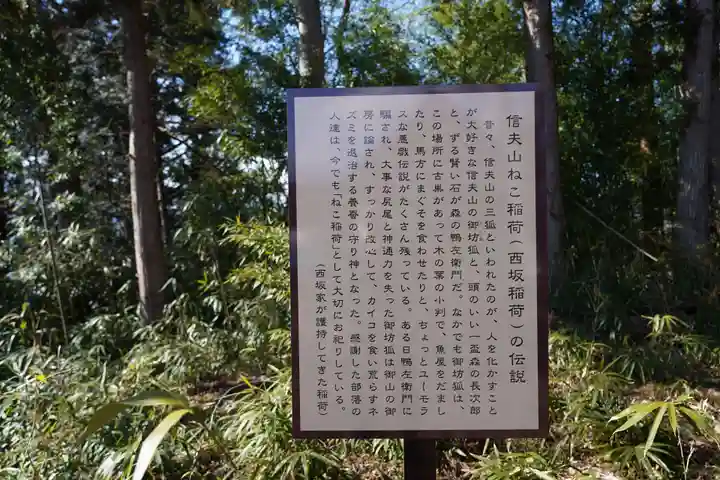 信夫山ねこ稲荷(西坂稲荷)の伝説
昔々、信夫山の三狐といわれたのが、人を化かすこと
が大好きな信夫山の御坊狐と、頭のいい一盃森の長次郎
と、ずる賢い石が森の鴨左衛門だ。なかでも御坊狐は、
この場所に古巣があって木の葉の小判で、魚屋をだまし
たり、馬方にまぐそを食わせたりと、ちょっとユーモラ
スな悪戯伝説がたくさん残っている。ある日鴨左衛門に
騙され、大事な尻尾と神通力を失った御坊狐は御山の御
房に諭され、すっかり改心して、カイコを食い荒らすネ
ズミを退治する養蚕の守り神となった。感謝した部落の
人達は、今でも「ねこ稲荷」として大切にお祀りしている。
(西坂家が護持してきた稲荷)